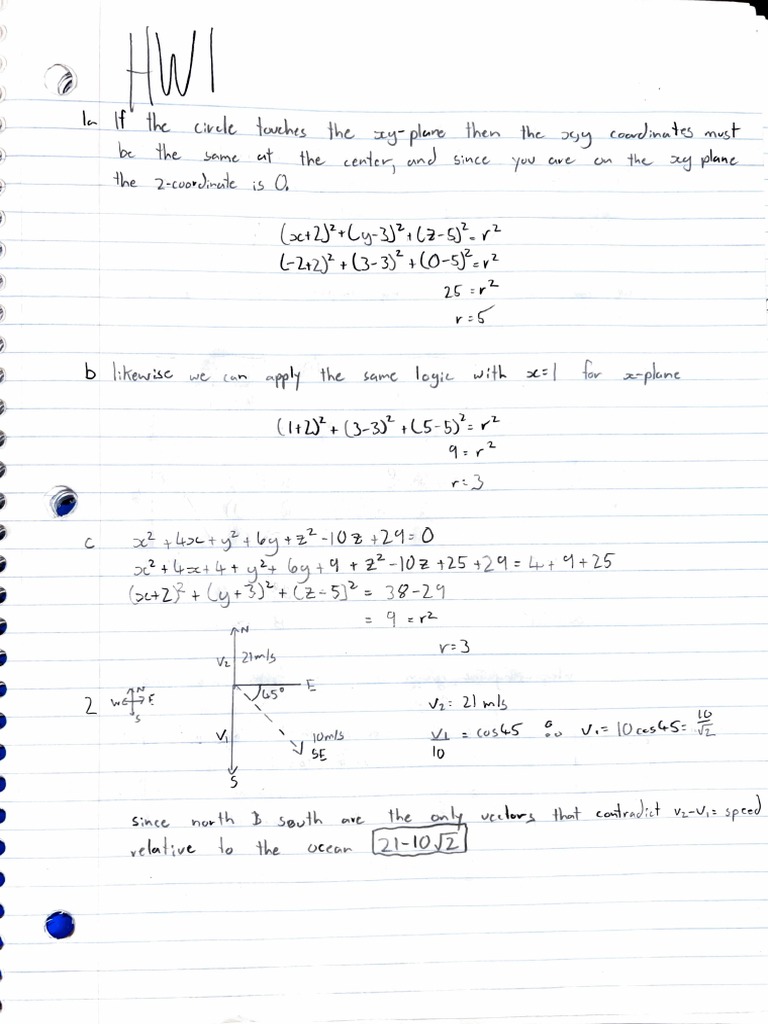 HW1
1a If the circle touches the xy-plane then the x,y coordinates must
be the same at the center, and since you are on the xy plane
the z-coordinate is 0.
(x+2)²+(y-3)²+(z-5)²=r²
(-2+2)²+(3-3)²+(0-5)²=r²
25=r²
r=5
b likewise we can apply the same logic with x=1 for x-plane
(1+2)²+(3-3)²+(5-5)²=r²
9=r²
r=3
c x²+4x+y²+6y+z²-10z+29=0
x²+4x+4+y²+6y+9+z²-10z+25+29=4+9+25
(x+2)²+(y+3)²+(z-5)²=38-29
=9=r²
r=3
N
V₂ 21m/s
45° E
2 W N E S
V₁ 10m/s
SE
S
V₂=21 m/s
V₁/10=cos45 ∴ V₁=10cos45=10/√2
since north & south are the only vectors that contradict V₂-V₁=speed
relative to the ocean 21-10√2